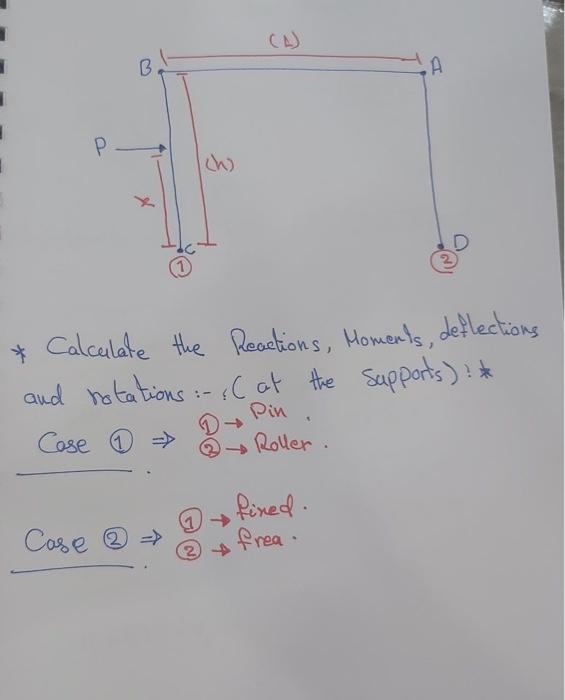 (L)
B
A
P
(h)
x
C
D
①
②
* Calculate the Reactions, Moments, deflections
and rotations :- (at the supports) : *
① → Pin .
Case ① ⇒
② → Roller .
① → fixed .
Case ② ⇒
② → frea .